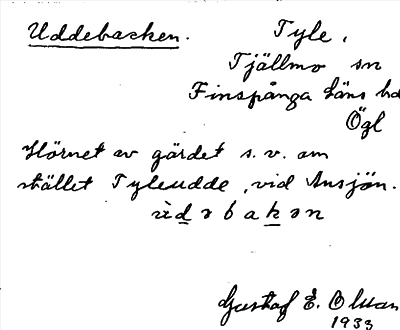 Uddebacken. Tyle,
Tjällmo sn
Finspånga läns hd
Ögl
Hörnet av gärdet s.v. om
stället Tyleudde, vid Ansjön.
ùdəbakən
Gustaf E. Olsson
1933